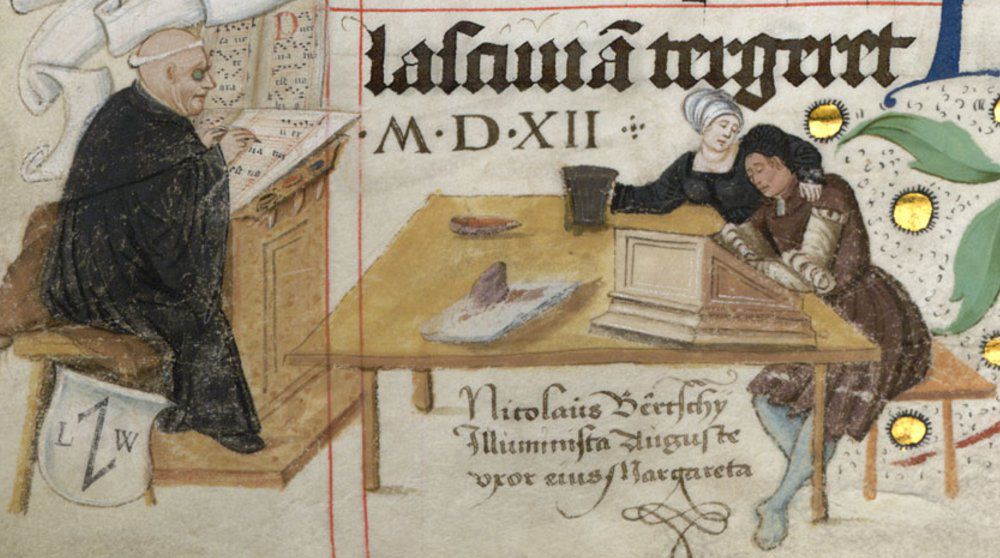 lasciuiā tergeret
·M·D·XII
Nicolaus Bêrtschy
Illuminista Auguste
vxor eius Margareta
L Z W